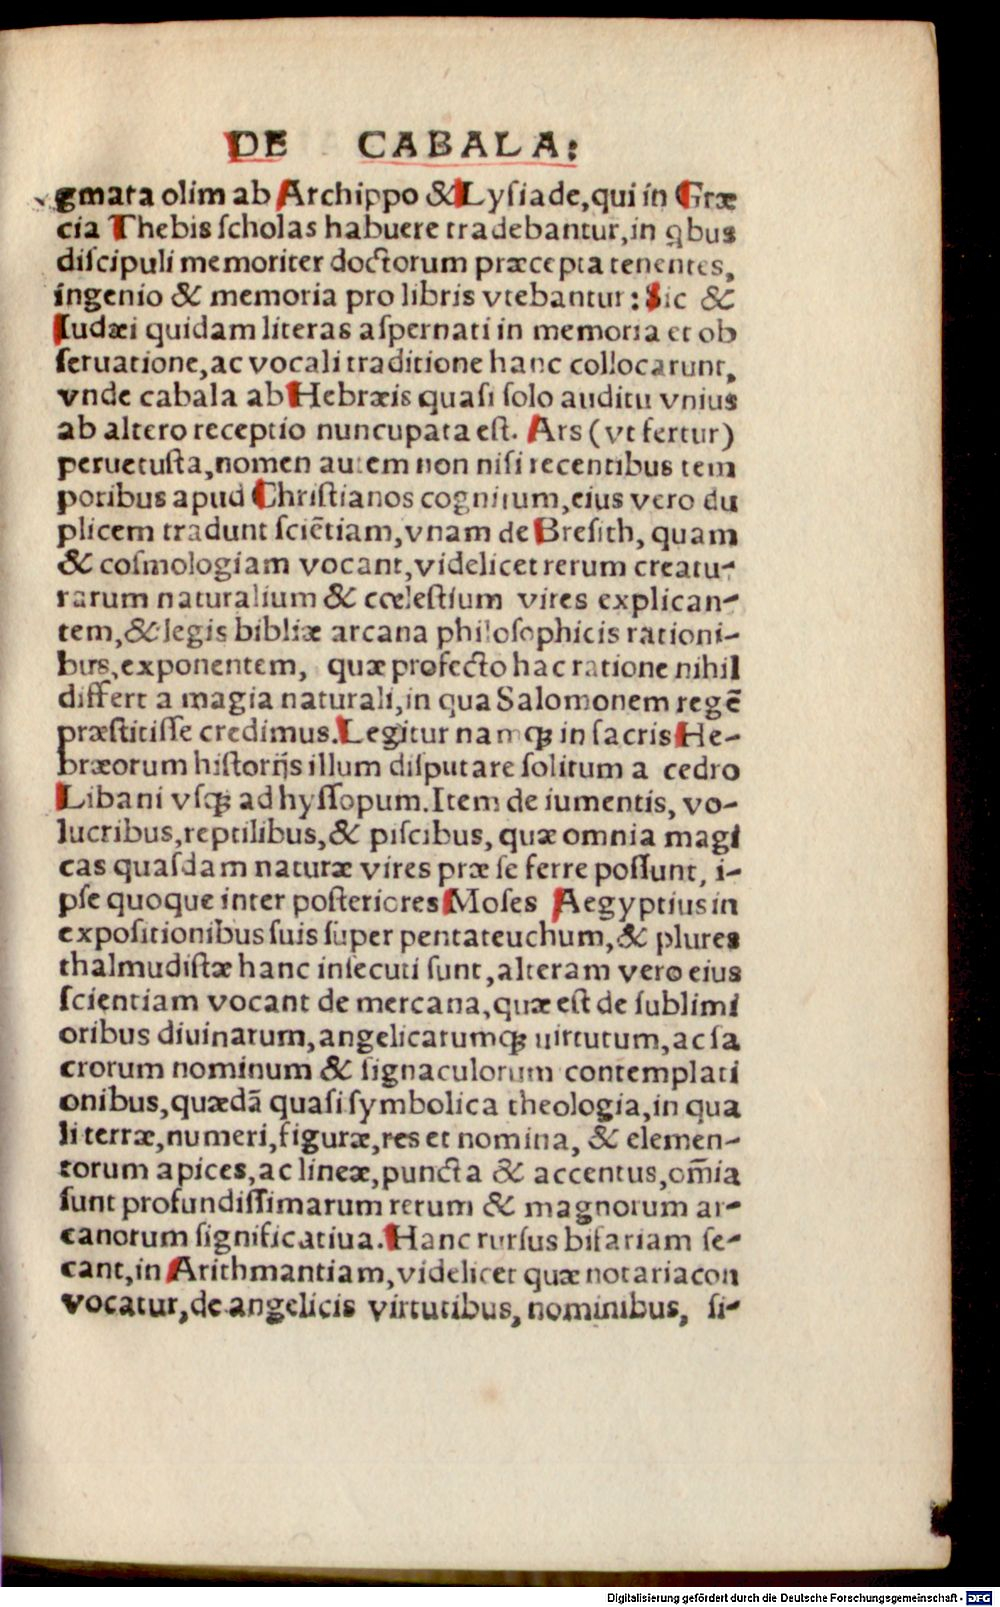 DE CABALA:
gmata olim ab Archippo & Lysiade, qui in Græ
cia Thebis scholas habuere tradebantur, in qbus
discipuli memoriter doctorum præcepta tenentes,
ingenio & memoria pro libris vtebantur: Sic &
Iudæi quidam literas aspernati in memoria et ob
seruatione, ac vocali traditione hanc collocarunt,
vnde cabala ab Hebræis quasi solo auditu vnius
ab altero receptio nuncupata est. Ars (vt fertur)
peruetusta, nomen autem non nisi recentibus tem
poribus apud Christianos cognitum, eius vero du
plicem tradunt sciẽtiam, vnam de Bresith, quam
& cosmologiam vocant, videlicet rerum creatu-
rarum naturalium & cœlestium vires explican-
tem, & legis bibliæ arcana philosophicis rationi-
bus, exponentem, quæ profecto hac ratione nihil
differt a magia naturali, in qua Salomonem regẽ
præstitisse credimus. Legitur namqꝫ in sacris He-
bræorum historijs illum disputare solitum a cedro
Libani vsqꝫ ad hyssopum. Item de iumentis, vo-
lucribus, reptilibus, & piscibus, quæ omnia magi
cas quasdam naturæ vires præ se ferre possunt, i-
pse quoque inter posteriores Moses Aegyptius in
expositionibus suis super pentateuchum, & plures
thalmudistæ hanc insecuti sunt, alteram vero eius
scientiam vocant de mercana, quæ est de sublimi
oribus diuinarum, angelicarumqꝫ uirtutum, ac sa
crorum nominum & signaculorum contemplati
onibus, quædã quasi symbolica theologia, in qua
literræ, numeri, figuræ, res et nomina, & elemen-
torum apices, ac lineæ, puncta & accentus, om̃ia
sunt profundissimarum rerum & magnorum ar-
canorum significatiua. Hanc rursus bifariam se-
cant, in Arithmantiam, videlicet quæ notariacon
vocatur, de angelicis virtutibus, nominibus, si-
Digitalisierung gefördert durch die Deutsche Forschungsgemeinschaft - DFG